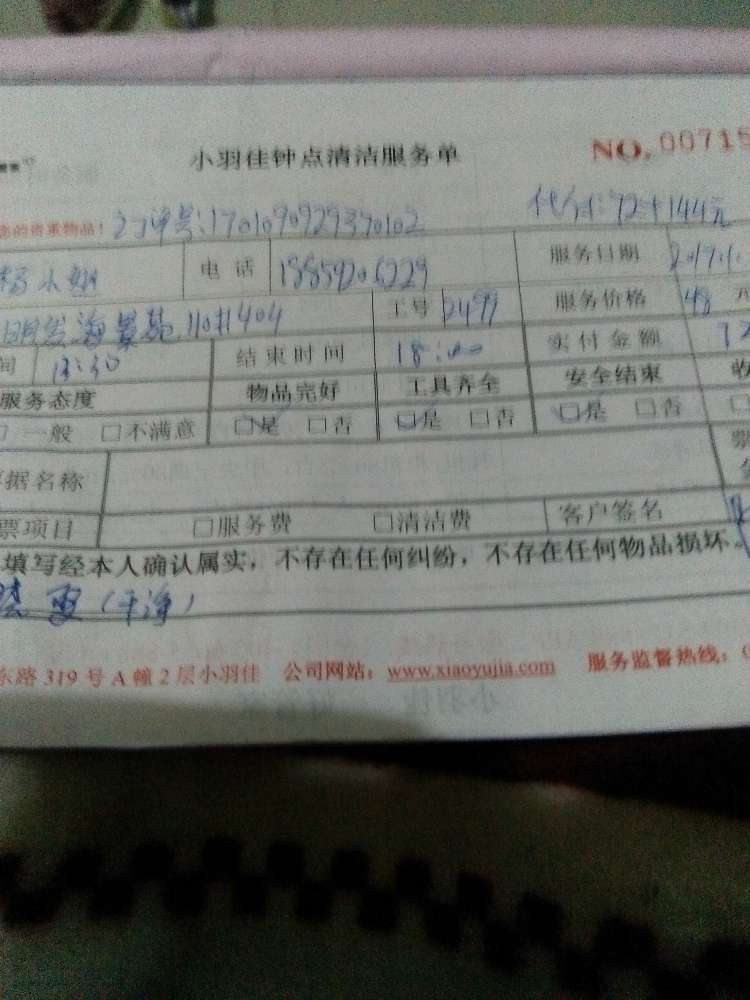 小羽佳钟点清洁服务单 NO. 00715
您的贵重物品! 订单号:1701090929390102 代付:72+144元
杨小姐 电话 服务日期 2017.1.
明发海景苑 110#404 工号 2499 服务价格 48 元
间 结束时间 18:00 实付金额 72
服务态度 物品完好 工具齐全 安全结束 收
□一般 □不满意 □是 □否 □是 □否 □是 □否
票据名称 票
票项目 □服务费 □清洁费 客户签名
填写经本人确认属实,不存在任何纠纷,不存在任何物品损坏。
(干净)
东路 319 号 A 幢 2 层小羽佳 公司网站:www.xiaoyujia.com 服务监督热线:0